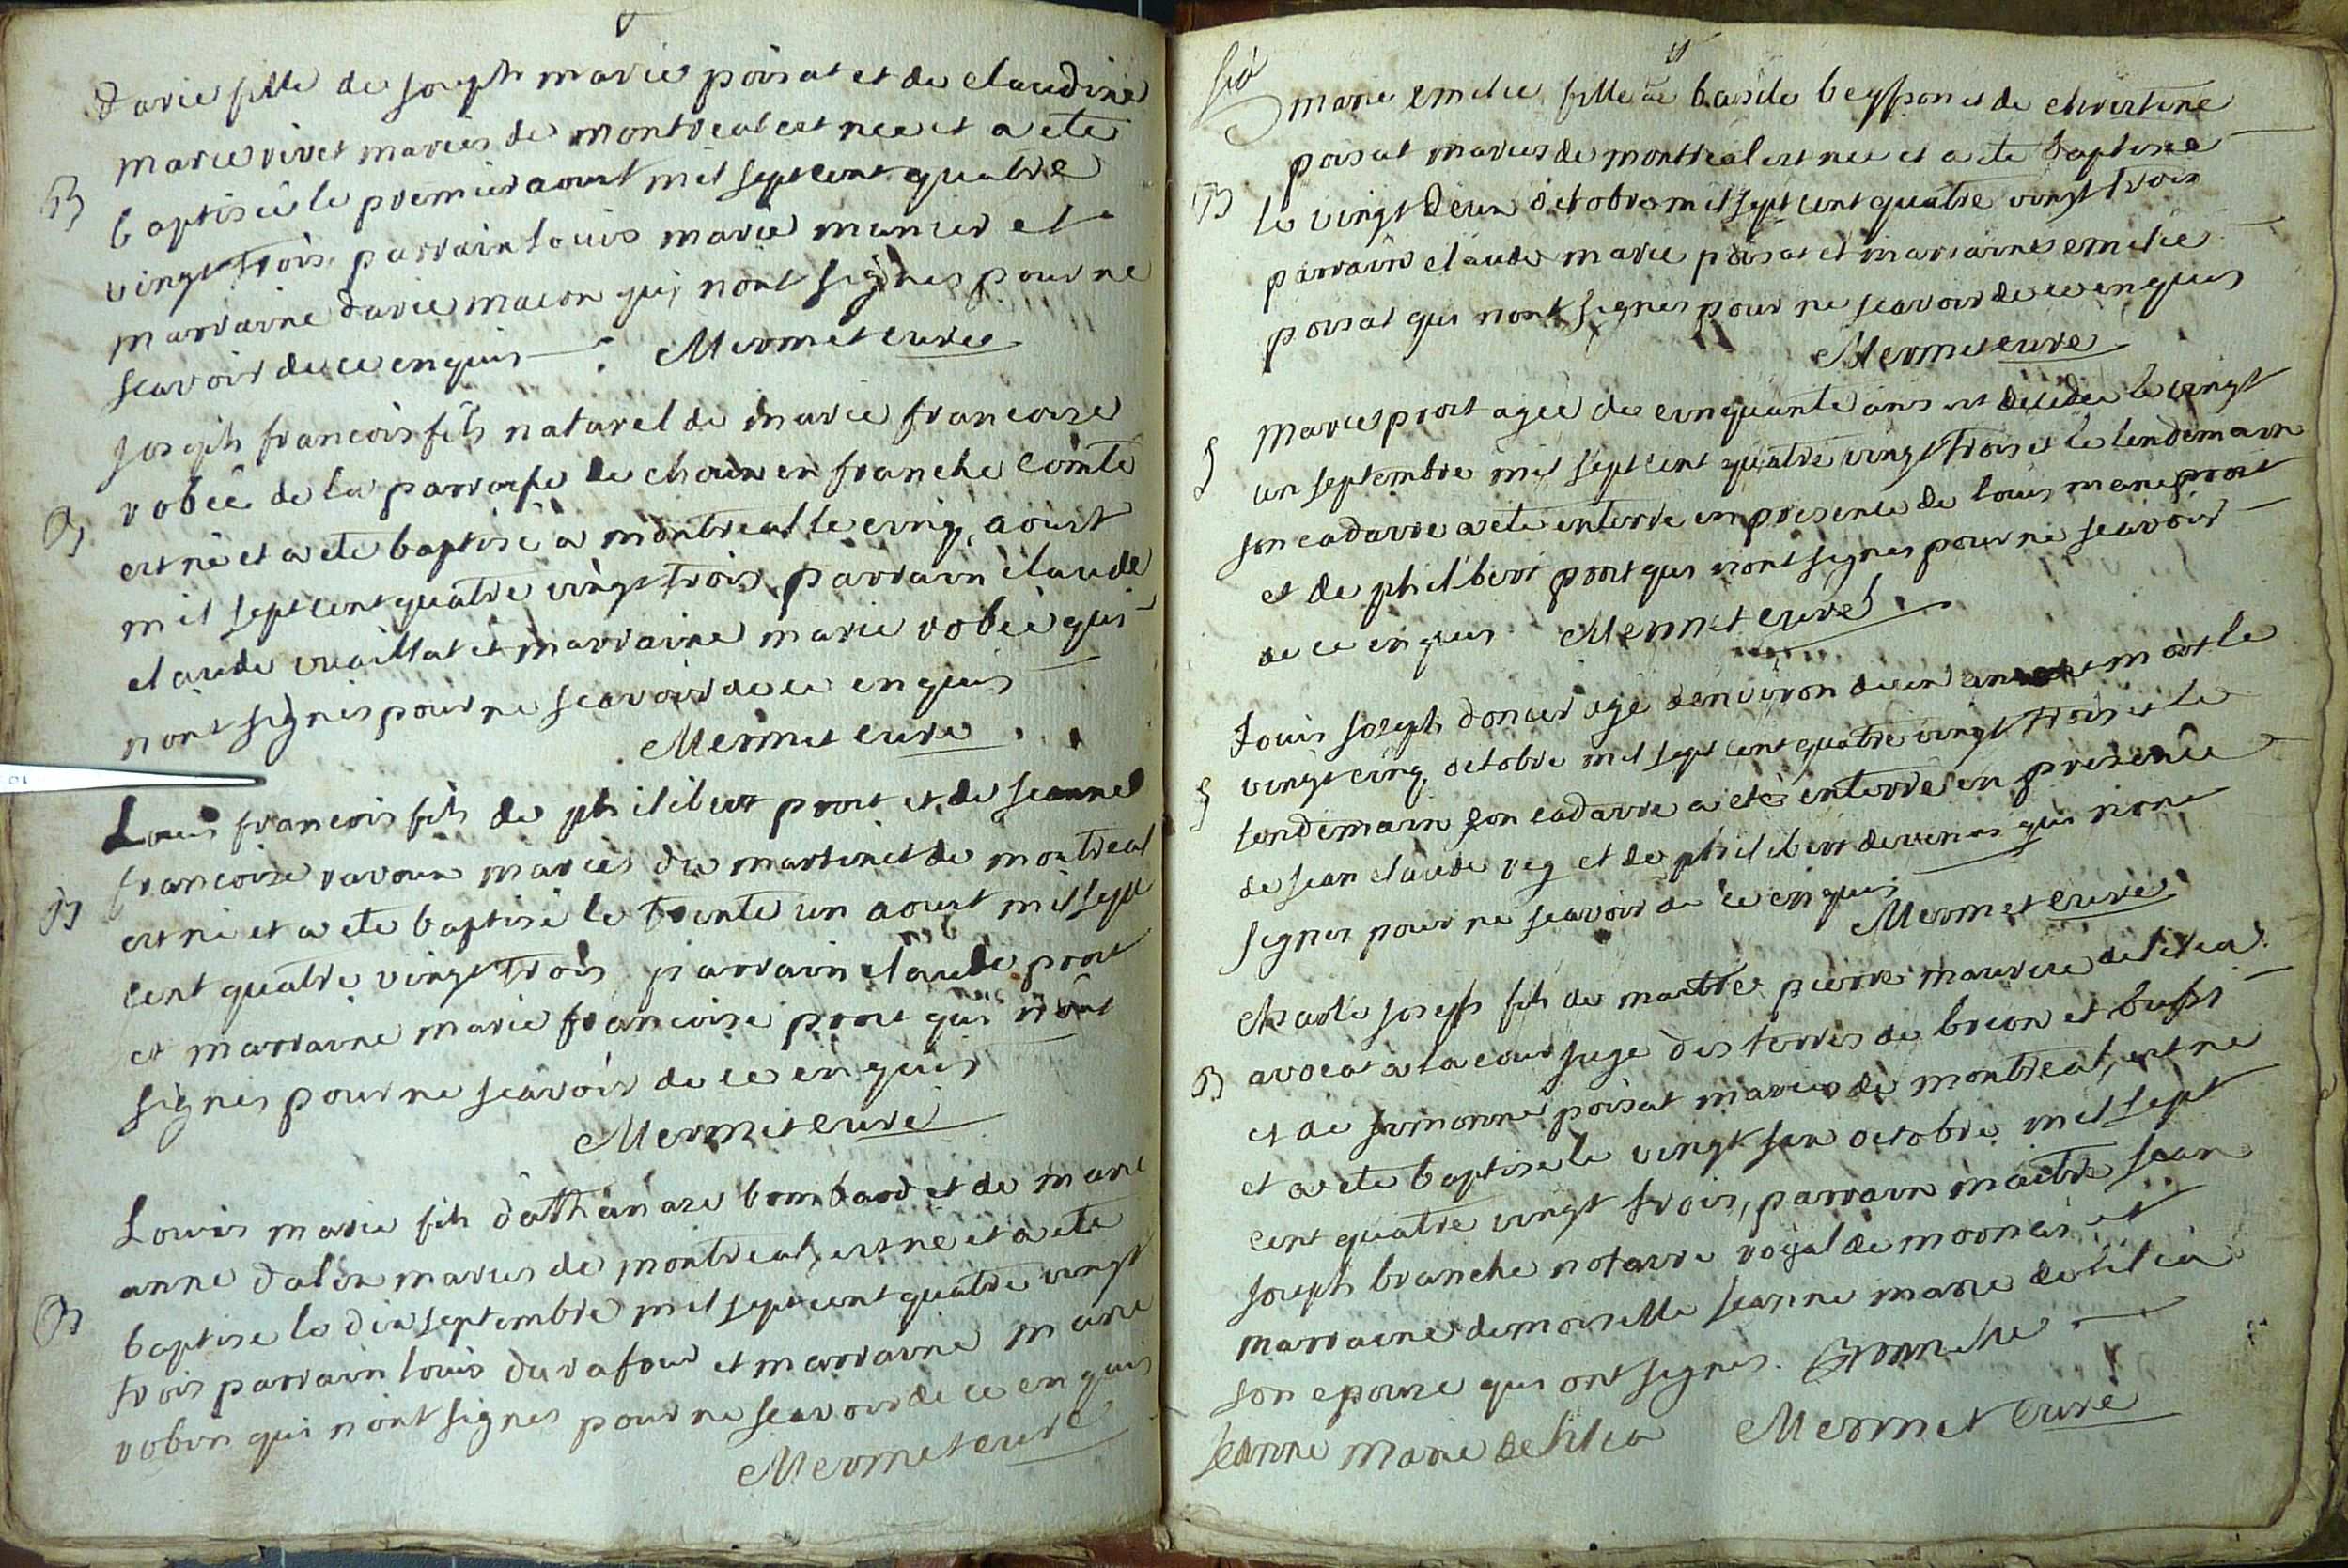 Darie fille de joseph marie poisat et de claudine
marie vivet mariés de montreal est nee et a ete
B
baptiseé le premier aoust mil sept cent quatre
vingt trois, parrain louis marie munier et
marraine darie macon qui n'ont signés pour ne
scavoir de ce enquis Mermet curé
joseph francois fils naturel de marie francoise
robeé de la parroisse de choux en franche comté
B
est né et a ete baptisé a montreal le cinq aoust
mil sept cent quatre vingt trois, parrain claude
claude vuaillat et marraine marie robeé qui
n'ont signés pour ne scavoir de ce enquis
Mermet curé
10
Louis francois fils de philibert prost et de jeanne
francoise mariés du martinet de montreal
B
est né et a ete baptisé le trente un aoust mil sept
cent quatre vingt trois parrain claude prost
et marraine marie francoise prost qui n'ont
signés pour ne scavoir de ce enquis
Mermet curé
Louis marie fils d'athanaze bombard et de marie
anne dalin mariés de montreal, est né et a ete
B
baptise le dix septembre mil sept cent quatre vingt
trois parrain louis durafour et marraine marie
robin qui n'ont signés pour ne scavoir de ce enquis
Mermet curé
marie emelie fille de basile beysson et de christine
poisat mariés de montreal est neé et a ete baptisée
B
le vingt deux octobre mil sept cent quatre vingt trois
parrain claude marie poisat et marraine emelie
poisat qui n'ont signés pour ne scavoir de ce enquis
Mermet curé
Marie prost agée de cinquante ans est décédée le vingt
S
un septembre mil sept cent quatre vingt trois et le lendemain
son cadavre a ete enterré en presence de louis marie prost
et de philibert prost qui n'ont signés pour ne scavoir
de ce enquis Mermet curé
Louis joseph doncer agé d'environ deux ans est mort le
S
vingt cinq octobre mil sept cent quatre vingt trois et le
lendemain son cadavre a eté enterré en presence
de jean claude rey et de philibert qui n'ont
signés pour ne scavoir de ce enquis
Mermet curé
charle joseph fils de maitre pierre maurice delilia
B
avocat a la cour juge des terres de brion et bussi
et de poisat mariés de montreal, est né
et a ete baptisé le vingt six octobre mil sept
cent quatre vingt trois, parrain maitre jean
joseph branche notaire royal de mornay et
marraine demoiselle jeanne marie delilia
son epouze qui ont signés. Branche
jeanne marie delilia Mermet curé